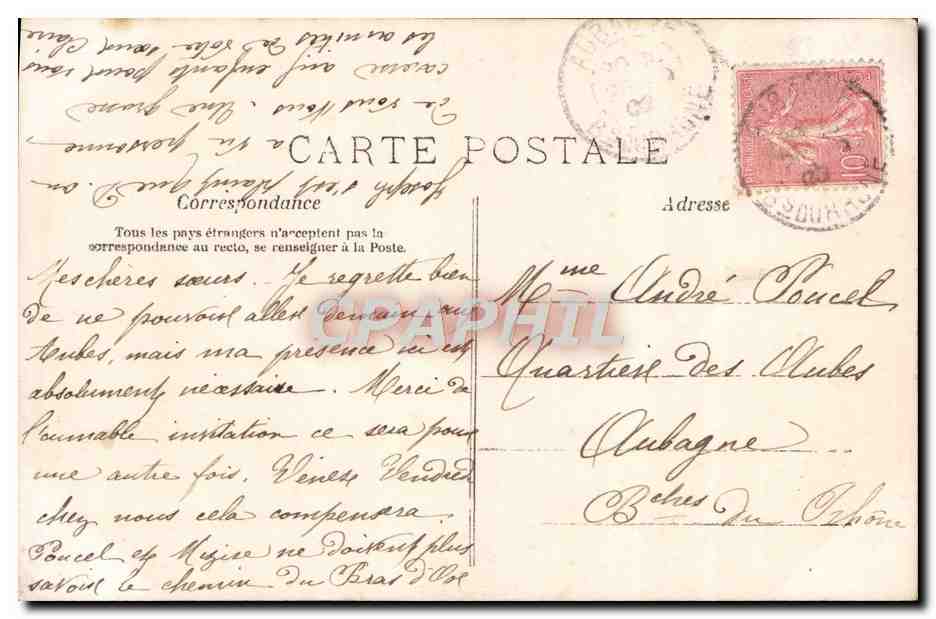 CARTE POSTALE
Correspondance
Tous les pays étrangers n'acceptent pas la
correspondance au recto, se renseigner à la Poste.
Mes chères sœurs. Je regrette bien
de ne pouvoir aller demain aux
Aubes, mais ma présence ici est
absolument nécessaire. Merci de
l'aimable invitation ce sera pour
une autre fois. Venez Vendredi
chez nous cela compensera.
Poucel et doivent plus
savoir le chemin du Bras d'Or
Joseph s'est plaint que D. on
a vu personne
de vous tous. Une grosse
caresse aux enfants pour vous
les amitiés de votre sœur Claire
Adresse
Mme André Poucel
Quartier des Aubes
Aubagne
Bches du Rhône
AUBAGNE
BSDURHONE
10
CPAPHIL